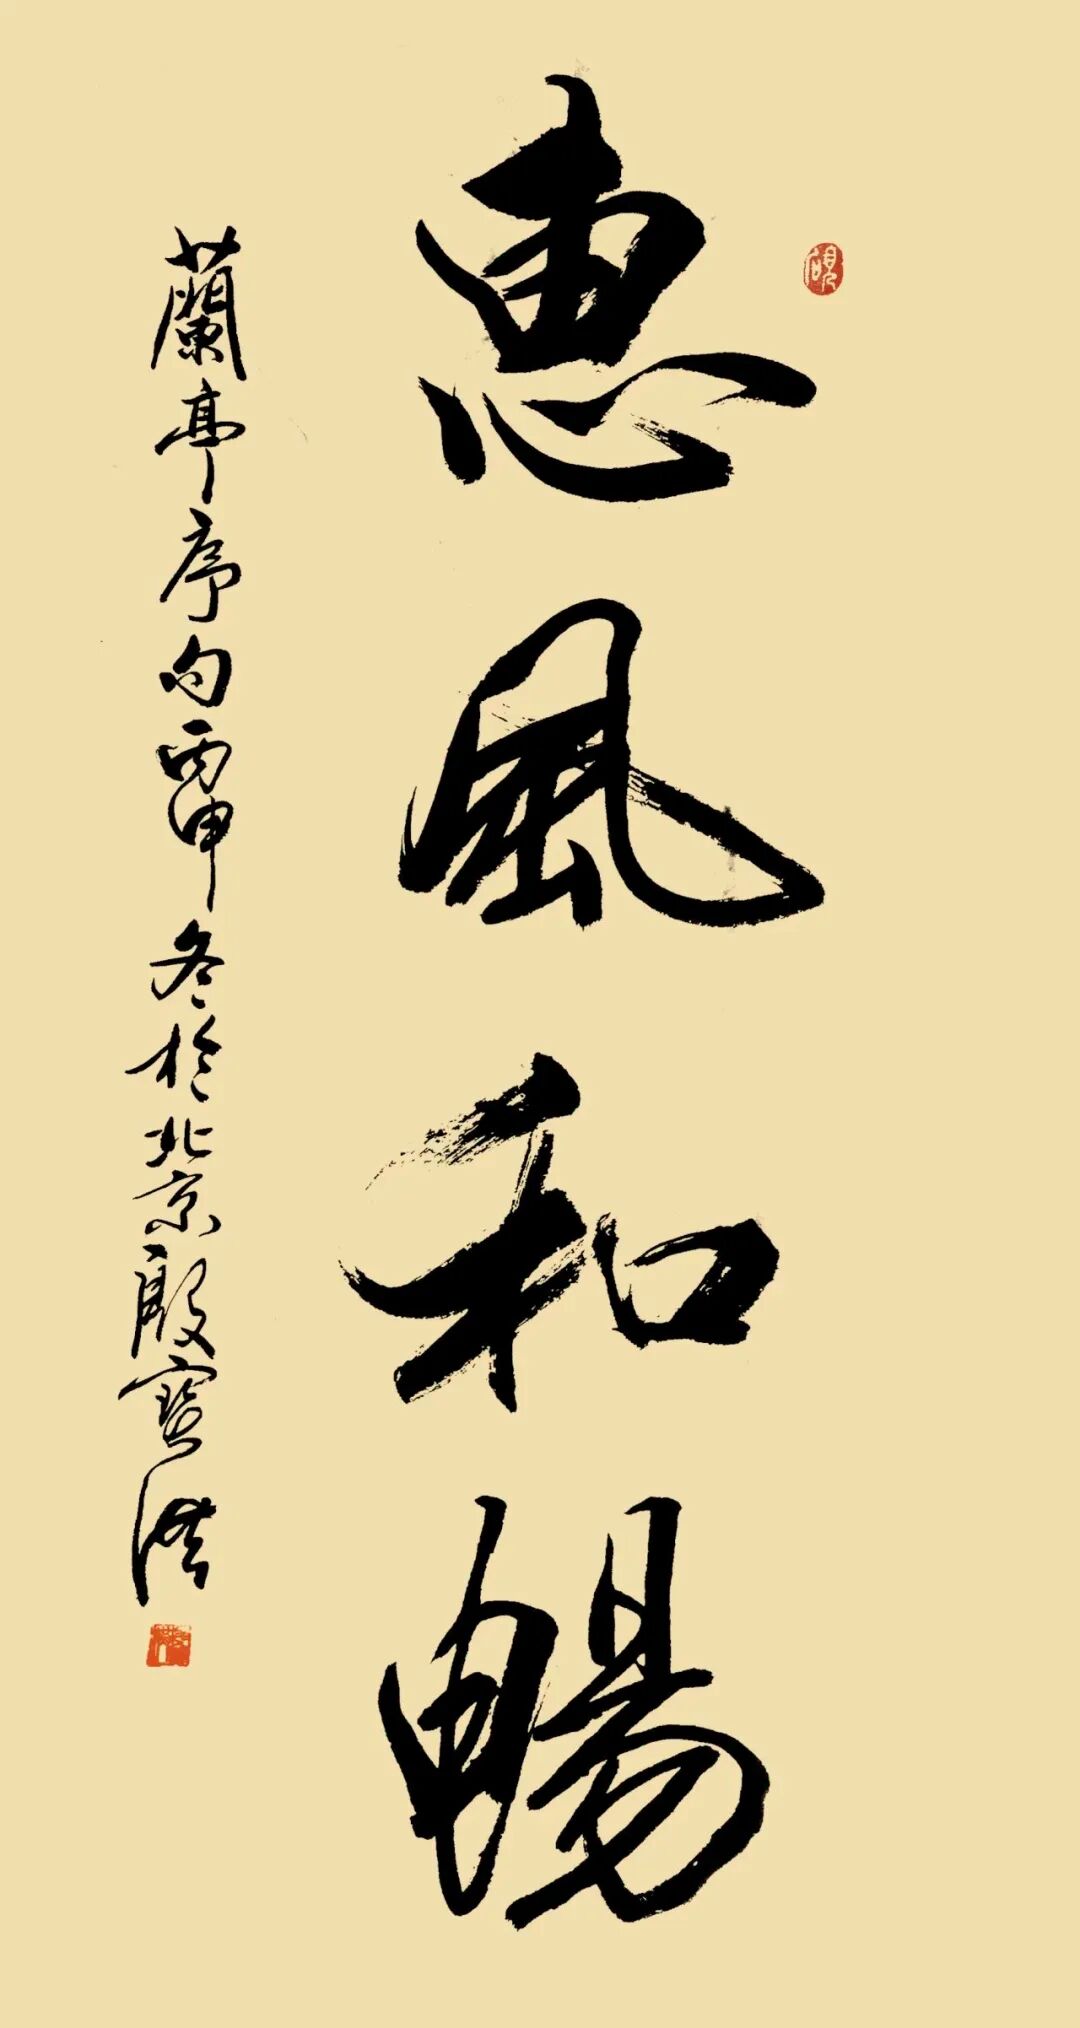 惠風和暢
蘭亭序句丙申冬於北京殷寶洪